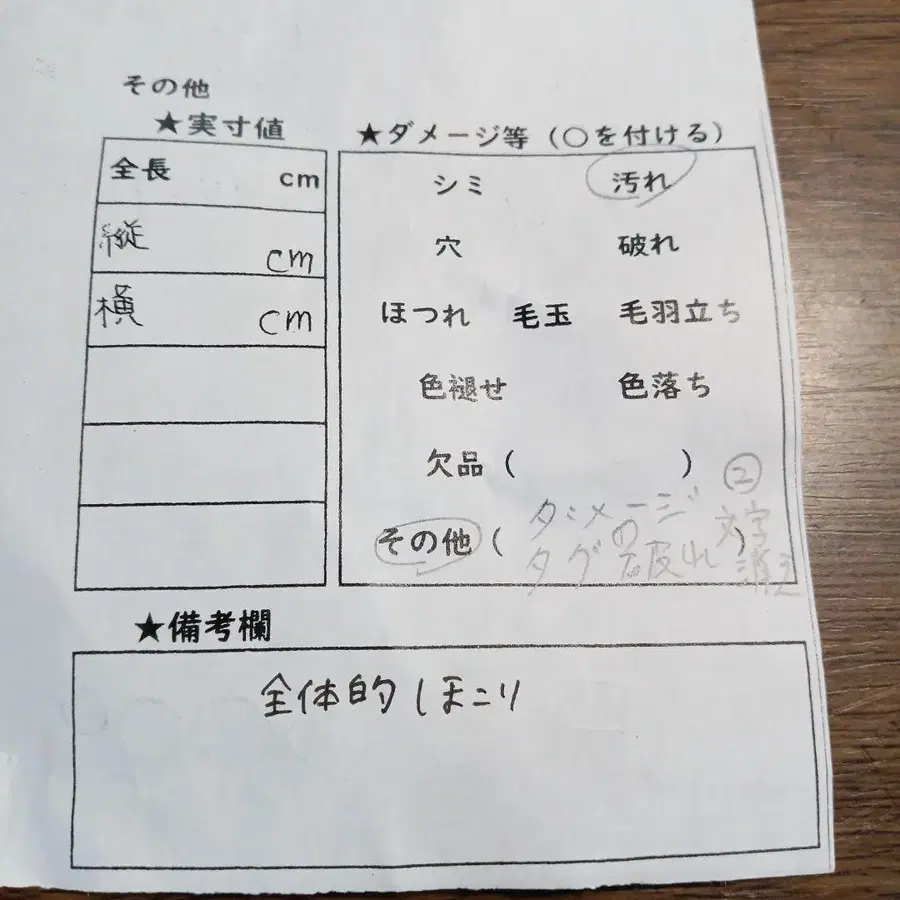 その他
★実寸値
全長 cm
縦 cm
横 cm
★ダメージ等（○を付ける）
シミ 汚れ
穴 破れ
ほつれ 毛玉 毛羽立ち
色褪せ 色落ち
欠品（ ）
その他（ ダメージ ② ）
タグの破れ 文字消え
★備考欄
全体的 ほこり